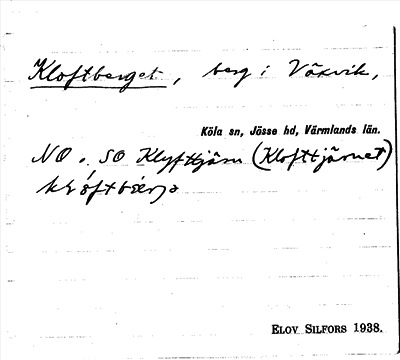 Kloftberget, berg i Växvik,
Köla sn, Jösse hd, Värmlands län.
NO. SO Klyfttjärn (Klofttjärnet)
ELOV SILFORS 1938.